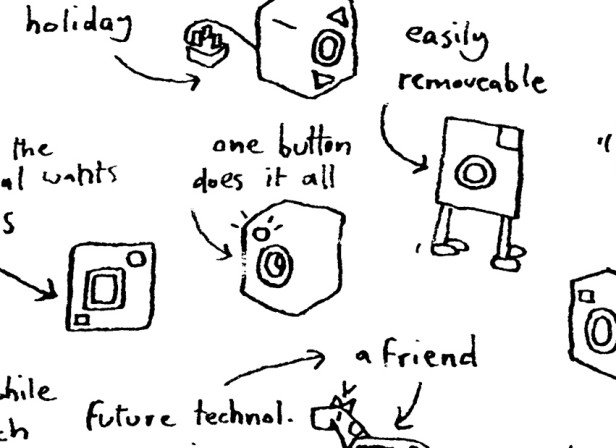 holiday
easily
removeable
the
al wants
s
one button
does it all
a friend
future technol.